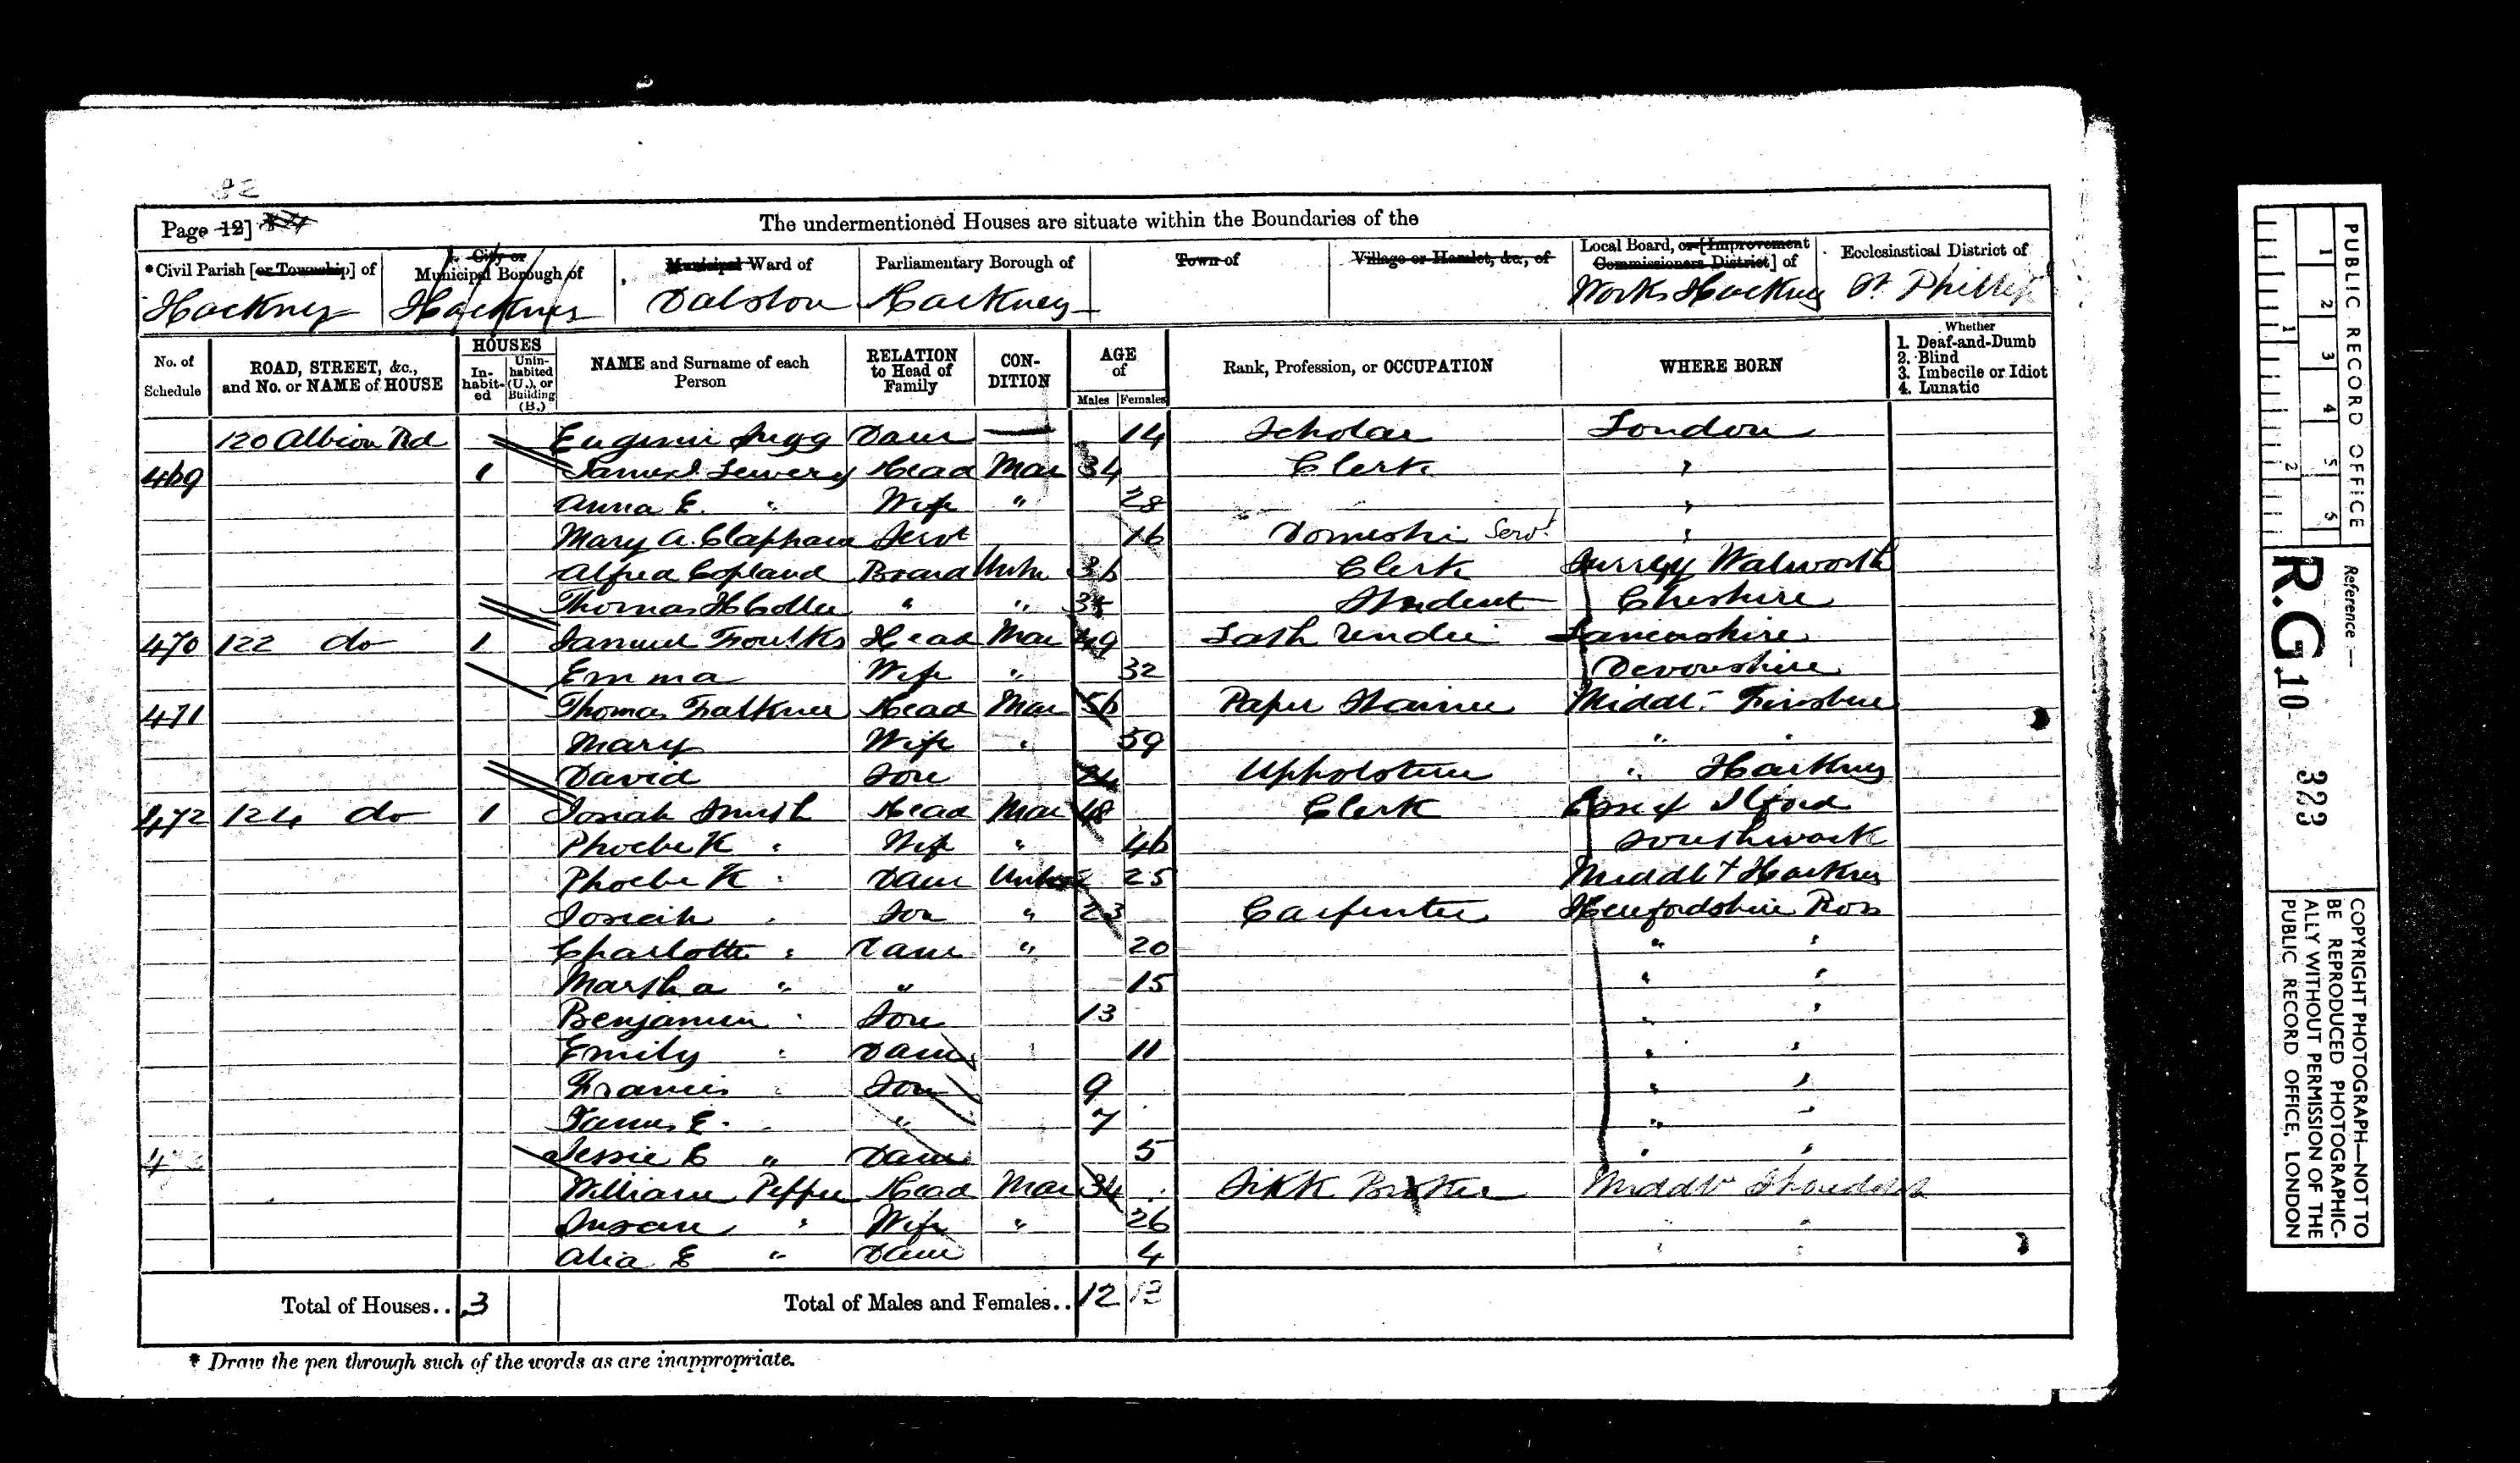 82
Page 12]
The undermentioned Houses are situate within the Boundaries of the
*Civil Parish [or Township] of
City or Municipal Borough of
Municipal Ward of
Parliamentary Borough of
Town of
Village or Hamlet, &c., of
Local Board, or [Improvement Commissioners District] of
Ecclesiastical District of
Hackney Hackney Dalston Hackney Works Hackney St. Phillip
No. of Schedule
ROAD, STREET, &c., and No. or NAME of HOUSE
HOUSES
In-habit-ed
Unin-habited (U.), or Building (B.)
NAME and Surname of each Person
RELATION to Head of Family
CON-DITION
AGE of
Males Females
Rank, Profession, or OCCUPATION
WHERE BORN
Whether
1. Deaf-and-Dumb
2. Blind
3. Imbecile or Idiot
4. Lunatic
120 Albion Rd Daur 14 Scholar London
469 1 Head Mar 34 Clerk "
Anna E. " Wife " 28 "
Mary A. Clapham Servt 16 Domestic Servt "
Alfred Copland Board Unm 36 Clerk Surrey Walworth
Thomas H " " Student Cheshire
470 122 do 1 Samuel Head Mar 49 Lancashire
Emma Wife " 32 Devonshire
471 Thomas Falkner Head Mar 56 Paper Stainer Middx Finsbury
Mary Wife " 59 " "
David Son 24 Upholsterer " Hackney
472 124 do 1 Josiah Smith Head Mar 48 Clerk Essex Ilford
Phoebe K " Wife " 46 Southwark
Phoebe K " Daur Unm 25 Middx Hackney
Josiah " Son " 23 Carpenter Herefordshire Ross
Charlotte " Daur " 20 " "
Martha " " 15 " "
Benjamin " Son 13 " "
Emily " Daur 11 " "
Francis " Son 9 " "
James E. " " 7 " "
Jessie E " Daur 5 " "
4 William Pepper Head Mar 34 Middx Shoreditch
Susan " Wife " 26 " "
E " Daur 4 " "
Total of Houses.. 3
Total of Males and Females.. 12 13
* Draw the pen through such of the words as are inappropriate.
PUBLIC RECORD OFFICE
1 2 3 4 5 6
1 2
Reference :—
R.G. 10 323
COPYRIGHT PHOTOGRAPH—NOT TO
BE REPRODUCED PHOTOGRAPHIC-
ALLY WITHOUT PERMISSION OF THE
PUBLIC RECORD OFFICE, LONDON